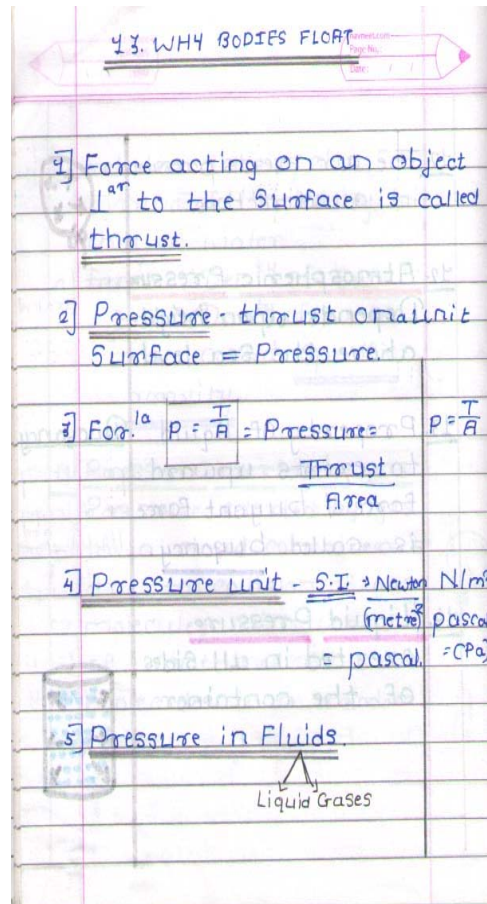 13. WHY BODIES FLOAT
Page No.:
Date: / /
1] Force acting on an object
⊥ar to the Surface is called
thrust.
2] Pressure - thrust on a unit
Surface = Pressure.
3] For.la P = T/A = Pressure = Thrust/Area
P = T/A
4] Pressure unit - S.I. → Newton/(metre)² N/m²
= pascal. pascal = (Pa)
5] Pressure in Fluids.
Liquid Gases